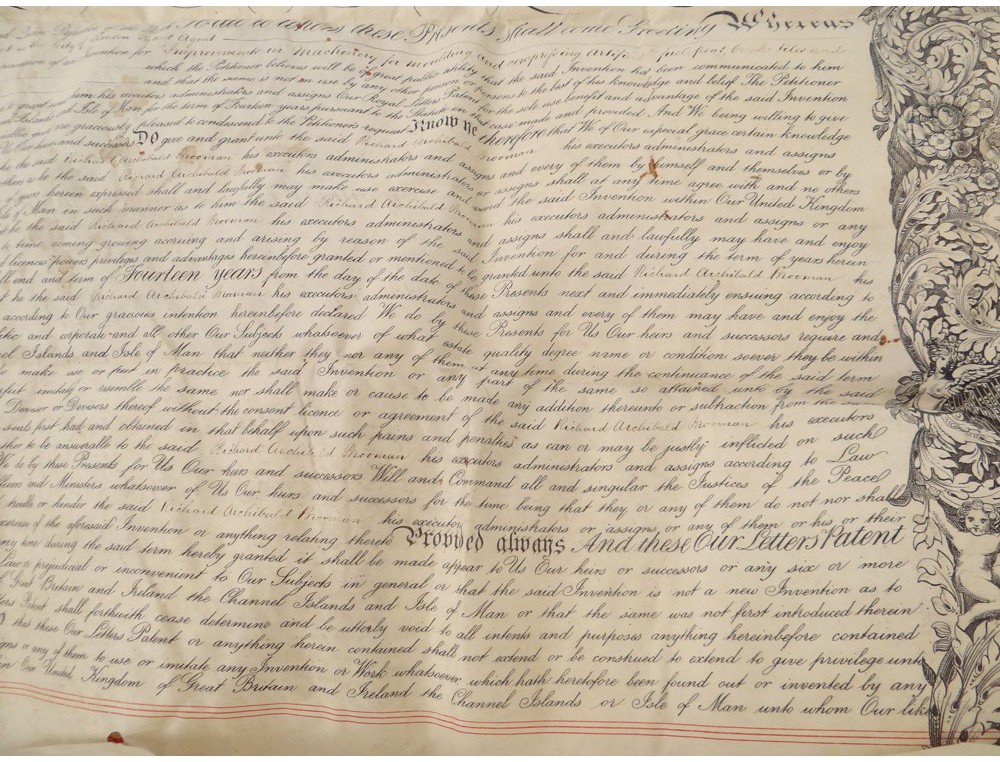 to whom these Presents shall come Greeting Whereas
City of London Patent Agent
Invention for Improvements in Machinery for moulding and compressing Artificial fuel peat bricks tiles and
which the Petitioner believes will be of great public utility that the said Invention has been communicated to him
and that the same is not in use by any other person or persons to the best of his knowledge and belief The Petitioner
him his executors administrators and assigns Our Royal Letters Patent for the sole use benefit and advantage of the said Invention
Islands and Isle of Man for the term of Fourteen years pursuant to the Statute in that case made and provided And We being willing to give
graciously pleased to condescend to the Petitioner's request Know ye therefore that We of Our especial grace certain knowledge
Our heirs and successors Do give and grant unto the said Richard Archibald Brooman his executors administrators and assigns
the said Richard Archibald Brooman his executors administrators and assigns and every of them by himself and themselves or by
the said Richard Archibald Brooman his executors administrators or assigns shall at any time agree with and no others
years herein expressed shall and lawfully may make use exercise and vend the said Invention within Our United Kingdom
of Man in such manner as to him the said Richard Archibald Brooman his executors administrators and assigns or any
the said Richard Archibald Brooman his executors administrators and assigns shall and lawfully may have and enjoy
to time coming growing accruing and arising by reason of the said Invention for and during the term of years herein
licences powers privileges and advantages hereinbefore granted or mentioned to be granted unto the said Richard Archibald Brooman his
full end and term of Fourteen years from the day of the date of these Presents next and immediately ensuing according to
the said Richard Archibald Brooman his executors administrators and assigns and every of them may have and enjoy the
according to Our gracious intention hereinbefore declared We do by these Presents for Us Our heirs and successors require and
and corporate and all other Our Subjects whatsoever of what estate quality degree name or condition soever they be within
Islands and Isle of Man that neither they nor any of them at any time during the continuance of the said term
make use or put in practice the said Invention or any part of the same so attained unto by the said
imitate or resemble the same nor shall make or cause to be made any addition thereunto or subtraction from the
Devisor or Devisors thereof without the consent licence or agreement of the said Richard Archibald Brooman his executors
seals first had and obtained in that behalf upon such pains and penalties as can or may be justly inflicted on such
to be answerable to the said Richard Archibald Brooman his executors administrators and assigns according to Law
We do by these Presents for Us Our heirs and successors Will and Command all and singular the Justices of the Peace
Officers and Ministers whatsoever of Us Our heirs and successors for the time being that they or any of them do not nor shall
trouble or hinder the said Richard Archibald Brooman his executors administrators or assigns or any of them or his or their
exercise of the aforesaid Invention or anything relating thereto Provided always And these Our Letters Patent
any time during the said term hereby granted it shall be made appear to Us Our heirs or successors or any six or more
Law or prejudicial or inconvenient to Our Subjects in general or that the said Invention is not a new Invention as to
of Great Britain and Ireland the Channel Islands and Isle of Man or that the same was not first introduced therein
Letters Patent shall forthwith cease determine and be utterly void to all intents and purposes anything hereinbefore contained
that these Our Letters Patent or anything herein contained shall not extend or be construed to extend to give privilege unto
or any of them to use or imitate any Invention or Work whatsoever which hath heretofore been found out or invented by any
in Our United Kingdom of Great Britain and Ireland the Channel Islands or Isle of Man unto whom Our like